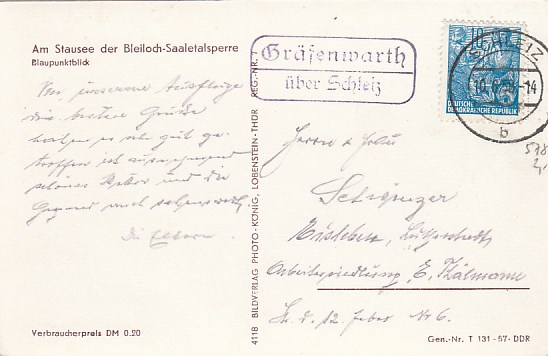 Am Stausee der Bleiloch-Saaletalsperre
Blaupunktblick
Von unserem Ausfluge
die besten Grüße
haben es sehr gut ge-
troffen ist ausgezeichnet
schönes Wetter und die
Gegend auch sehenswert.
Die Eltern
Verbraucherpreis DM 0.20
4118 BILDVERLAG PHOTO-KÖNIG, LOBENSTEIN-THÜR REG.-NR.
Gräfenwarth
über Schleiz
SCHLEIZ
-14
b
10
DEUTSCHE
DEMOKRATISCHE REPUBLIK
Herrn u. Frau
Eisleben, Lutherstadt
Arbeitersiedlung „E. Thälmann"
Nr 6.
Gen.-Nr. T 131-57-DDR